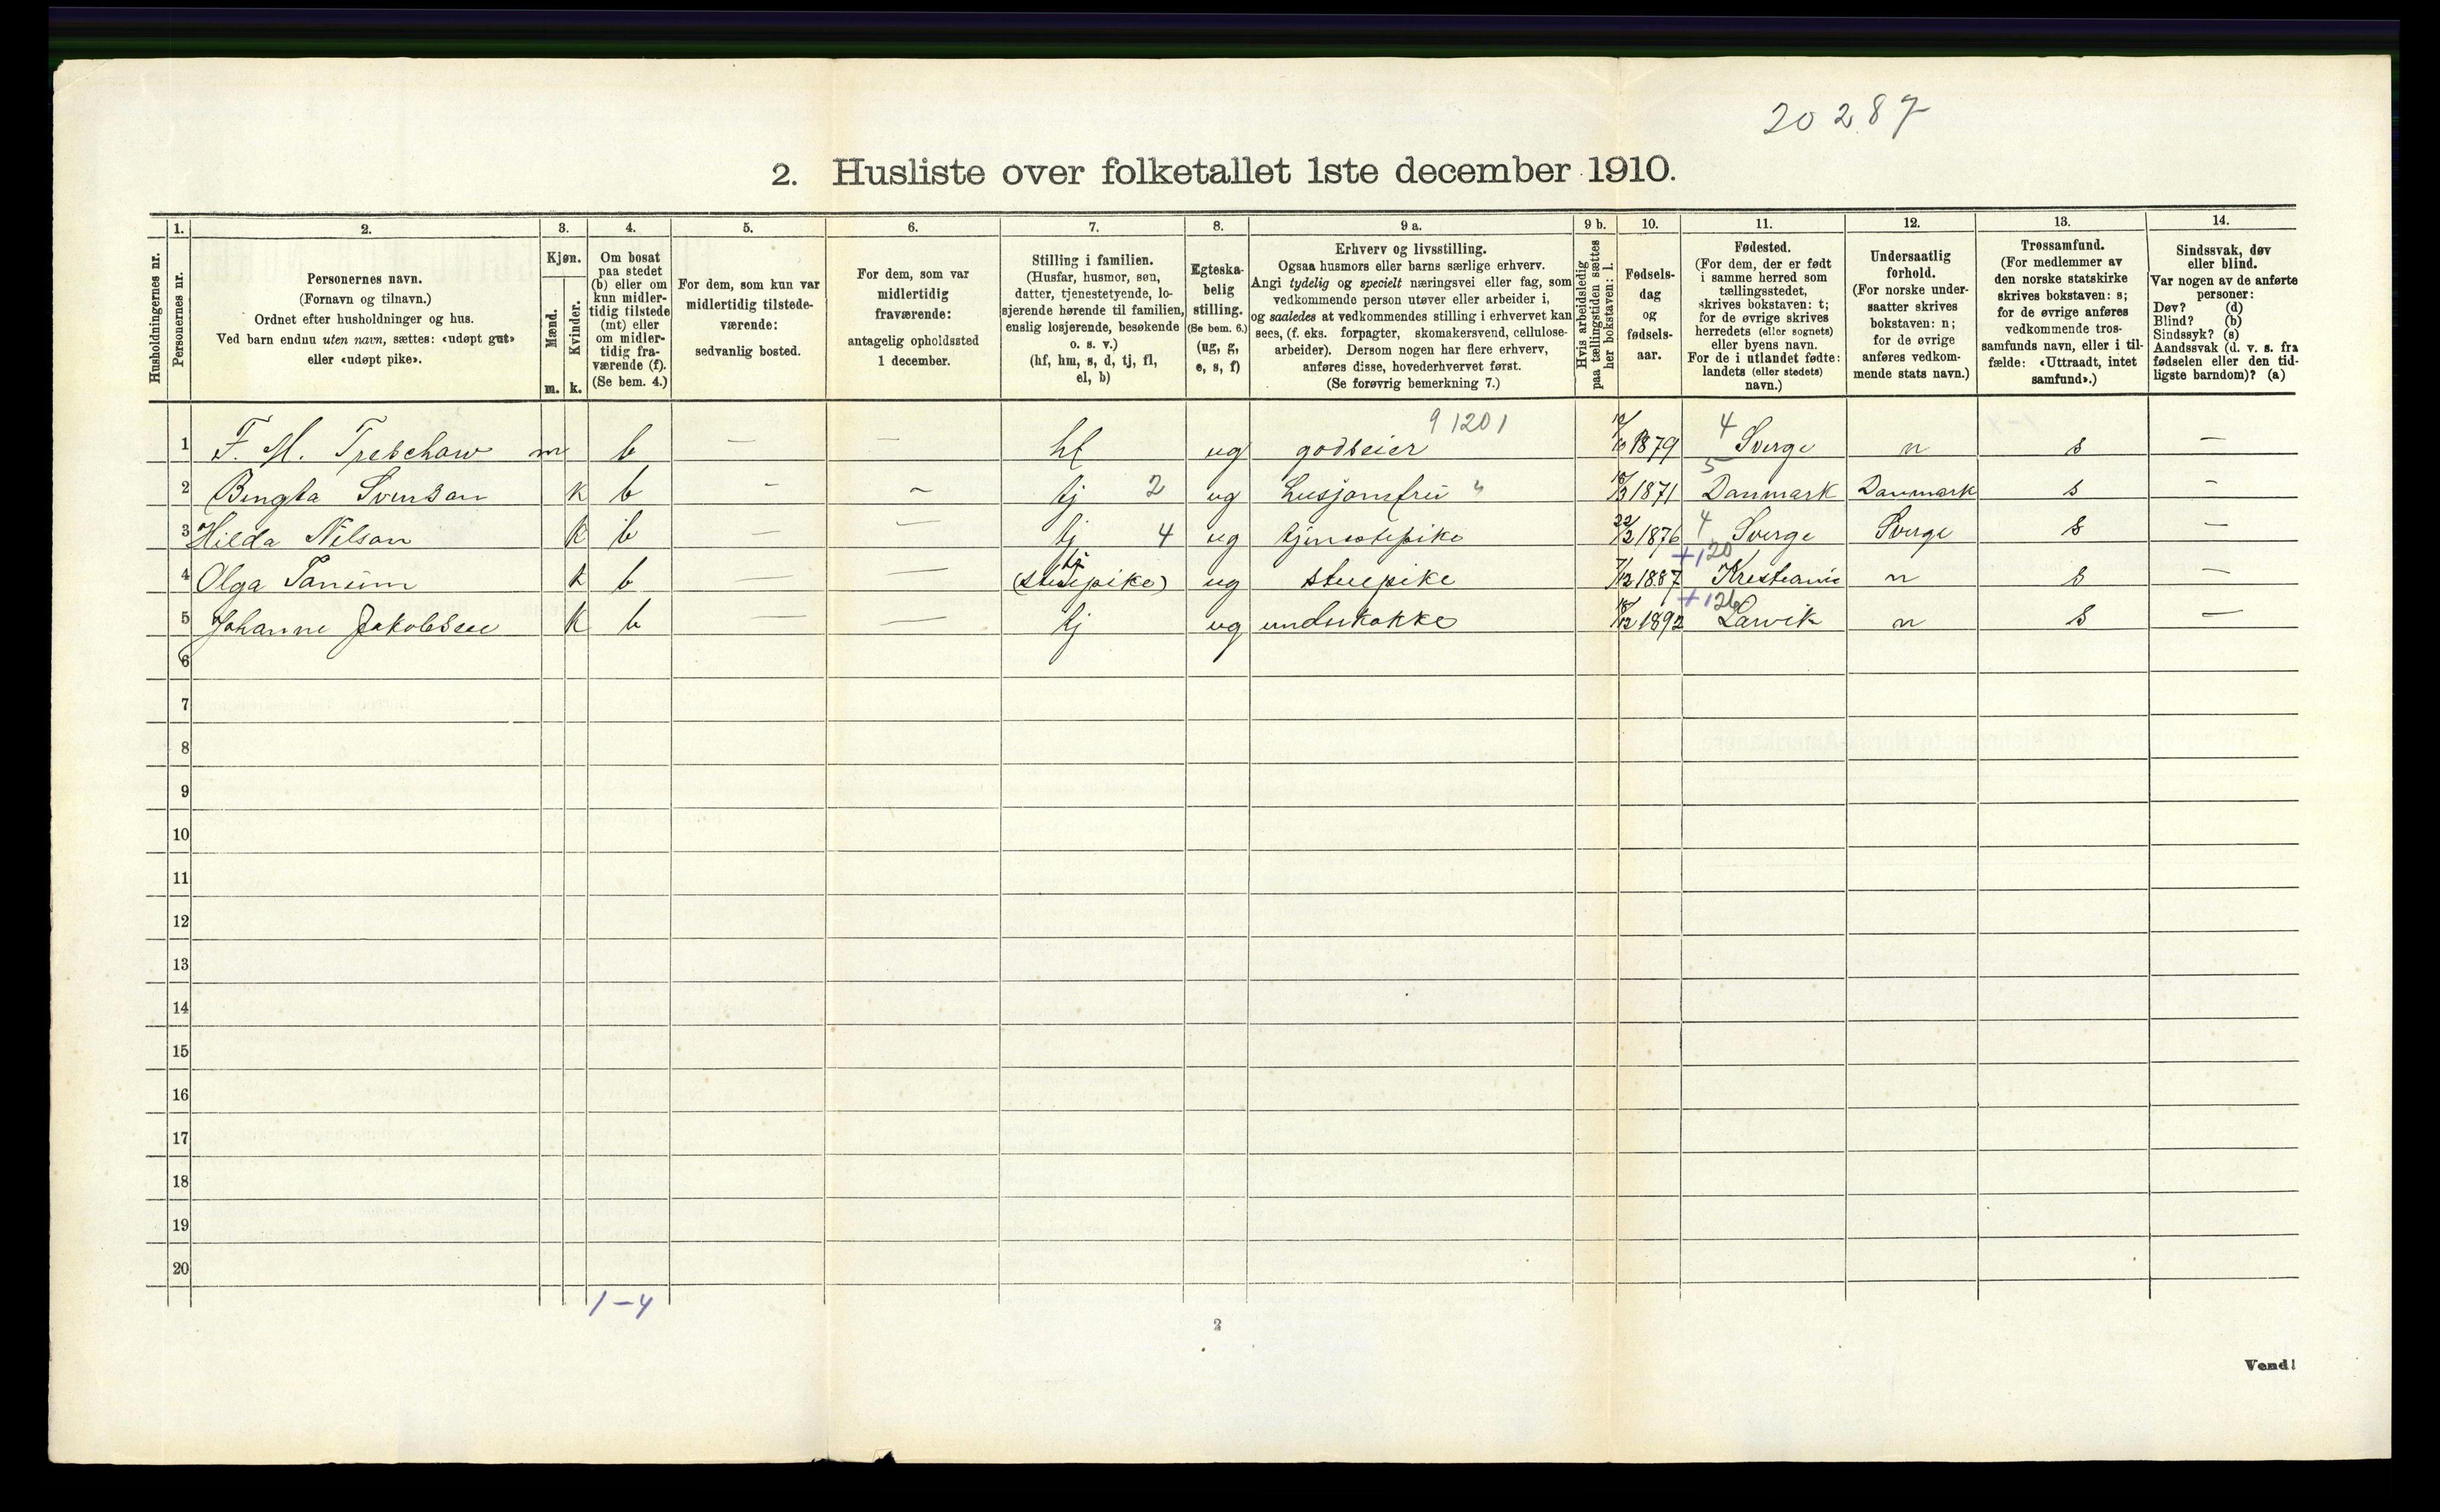 20287
2. Husliste over folketallet 1ste december 1910.
Husholdningernes nr.
1.
Personernes nr.
2.
Personernes navn.
(Fornavn og tilnavn.)
Ordnet efter husholdninger og hus.
Ved barn endnu uten navn, sættes: «udøpt gut»
eller «udøpt pike».
3.
Kjøn.
Mænd.
m.
Kvinder.
k.
4.
Om bosat
paa stedet
(b) eller om
kun midler-
tidig tilstede
(mt) eller
om midler-
tidig fra-
værende (f).
(Se bem. 4.)
5.
For dem, som kun var
midlertidig tilstede-
værende:
sedvanlig bosted.
6.
For dem, som var
midlertidig
fraværende:
antagelig opholdssted
1 december.
7.
Stilling i familien.
(Husfar, husmor, søn,
datter, tjenestetyende, lo-
sjerende hørende til familien,
enslig losjerende, besøkende
o. s. v.)
(hf, hm, s, d, tj, fl,
el, b)
8.
Egteska-
belig
stilling.
(Se bem. 6.)
(ug, g,
e, s, f)
9 a.
Erhverv og livsstilling.
Ogsaa husmors eller barns særlige erhverv.
Angi tydelig og specielt næringsvei eller fag, som
vedkommende person utøver eller arbeider i,
og saaledes at vedkommendes stilling i erhvervet kan
sees, (f. eks. forpagter, skomakersvend, cellulose-
arbeider). Dersom nogen har flere erhverv,
anføres disse, hovederhvervet først.
(Se forøvrig bemerkning 7.)
9 b.
Hvis arbeidsledig
paa tællingstiden sættes
her bokstaven: l.
10.
Fødsels-
dag
og
fødsels-
aar.
11.
Fødested.
(For dem, der er født
i samme herred som
tællingsstedet,
skrives bokstaven: t;
for de øvrige skrives
herredets (eller sognets)
eller byens navn.
For de i utlandet fødte:
landets (eller stedets)
navn.)
12.
Undersaatlig
forhold.
(For norske under-
saatter skrives
bokstaven: n;
for de øvrige
anføres vedkom-
mende stats navn.)
13.
Trossamfund.
(For medlemmer av
den norske statskirke
skrives bokstaven: s;
for de øvrige anføres
vedkommende tros-
samfunds navn, eller i til-
fælde: «Uttraadt, intet
samfund».)
14.
Sindssvak, døv
eller blind.
Var nogen av de anførte
personer:
Døv? (d)
Blind? (b)
Sindssyk? (s)
Aandssvak (d. v. s. fra
fødselen eller den tid-
ligste barndom)? (a)
91201
1 F. M. Treschow m b — — hf ug godseier 1879 4 Sverge n s —
2 Bengta Svenson k b - ~ tj 2 ug husjomfru 1871 5 Danmark Danmark s -
3 Hilda Nilson k b — — tj 4 ug tjenestepike 22/2 1876 4 Sverge Sverge s —
4 Olga Tanum k b — — tj (stuepike) ug stuepike 7/12 1887 +120 Kristiania n s —
5 Johanne Jakobsen k b — — tj ug underkokke 18/12 1892 +126 Larvik n s —
6
7
8
9
10
11
12
13
14
15
16
17
18
19
20
1–4
2
Vend!